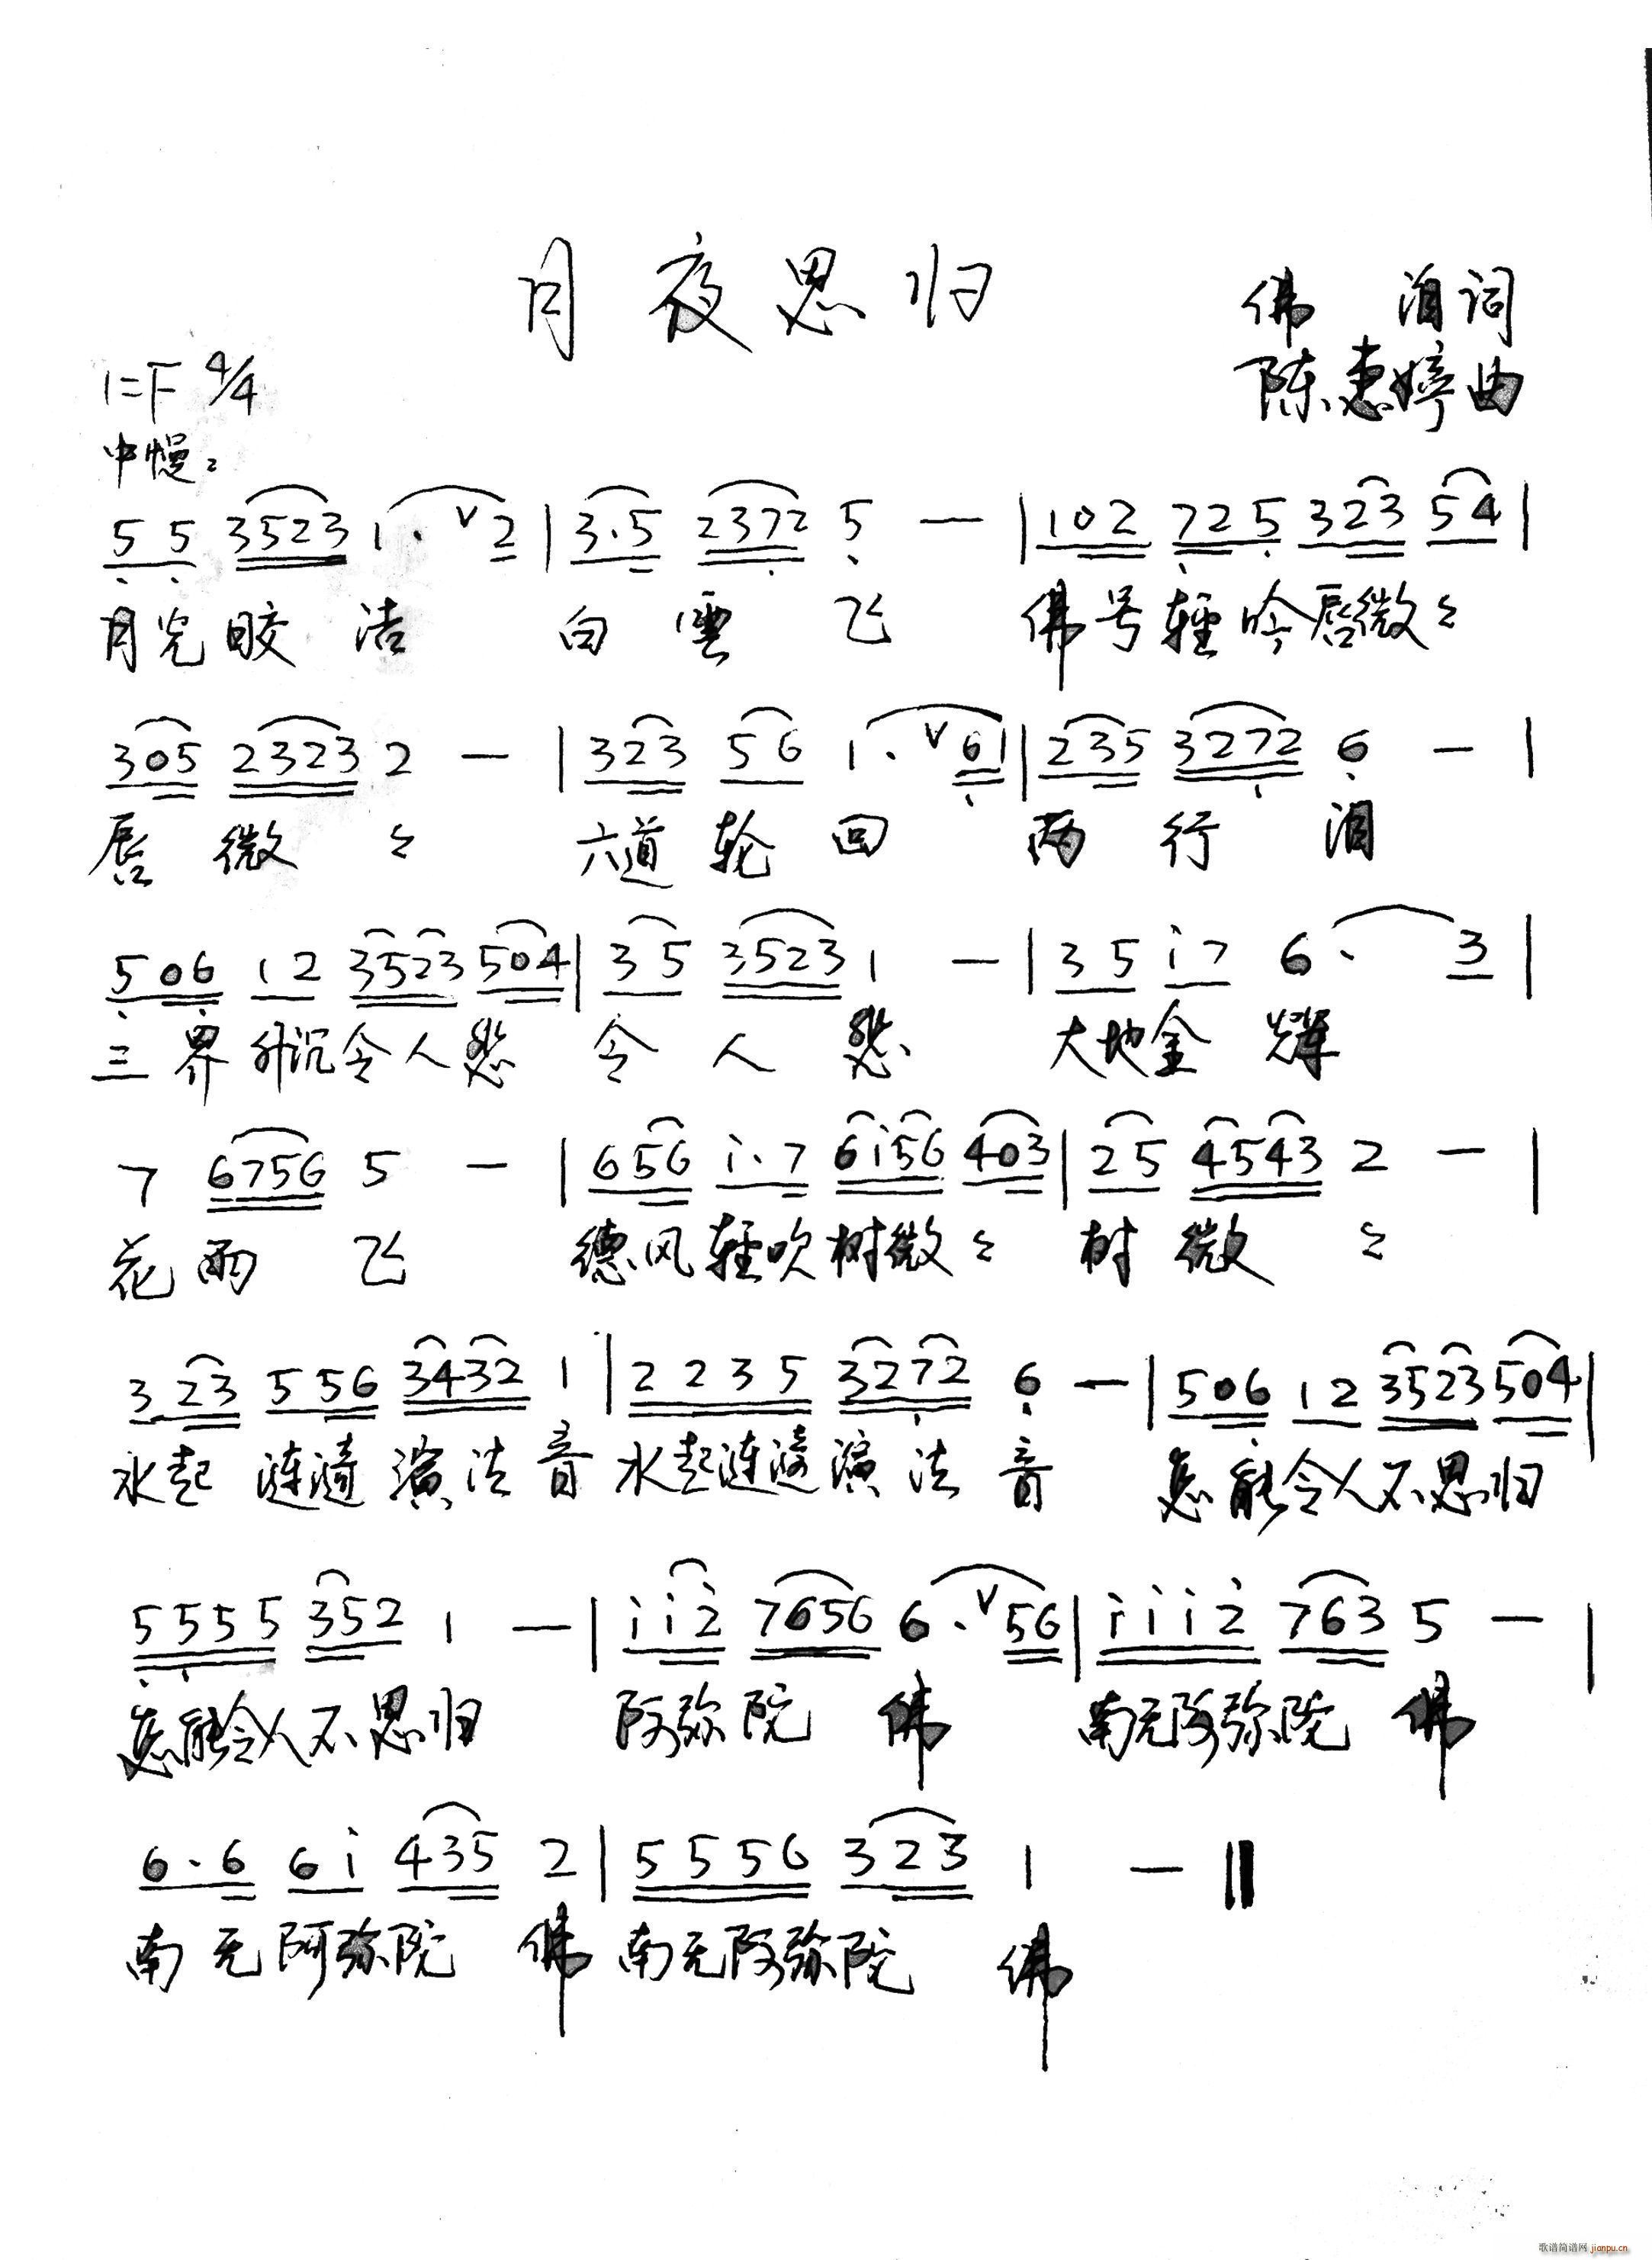 月夜思归
佛 泪词
陈惠婷曲
1=F 4/4
中慢:
5 5 3523 1. v 2 | 3.5 2372 5 — | 102 725 323 54 |
月光皎洁 白雲飞 佛号轻吟唇微々
305 2323 2 — | 323 56 1. v 61 | 235 3272 6 — |
唇微々 六道轮回 两行泪
506 12 3523 504 | 35 3523 1 — | 35 i7 6. 3 |
三界升沉令人愁 令人愁 大地金辉
7 6756 5 — | 656 i.7 6i56 403 | 25 4543 2 — |
花雨飞 德风轻吹树微々 树微々
323 556 3432 1 | 2235 3272 6 — | 506 12 3523 504 |
水起涟漪演法音 水起涟漪演法音 怎能令人不思归
5555 352 1 — | i i2 7656 6. v 56 | i i i 2 763 5 — |
怎能令人不思归 阿弥陀佛 南无阿弥陀佛
6.6 6i 435 2 | 5556 323 1 — ‖
南无阿弥陀佛 南无阿弥陀佛
歌谱简谱网 jianpu.cn